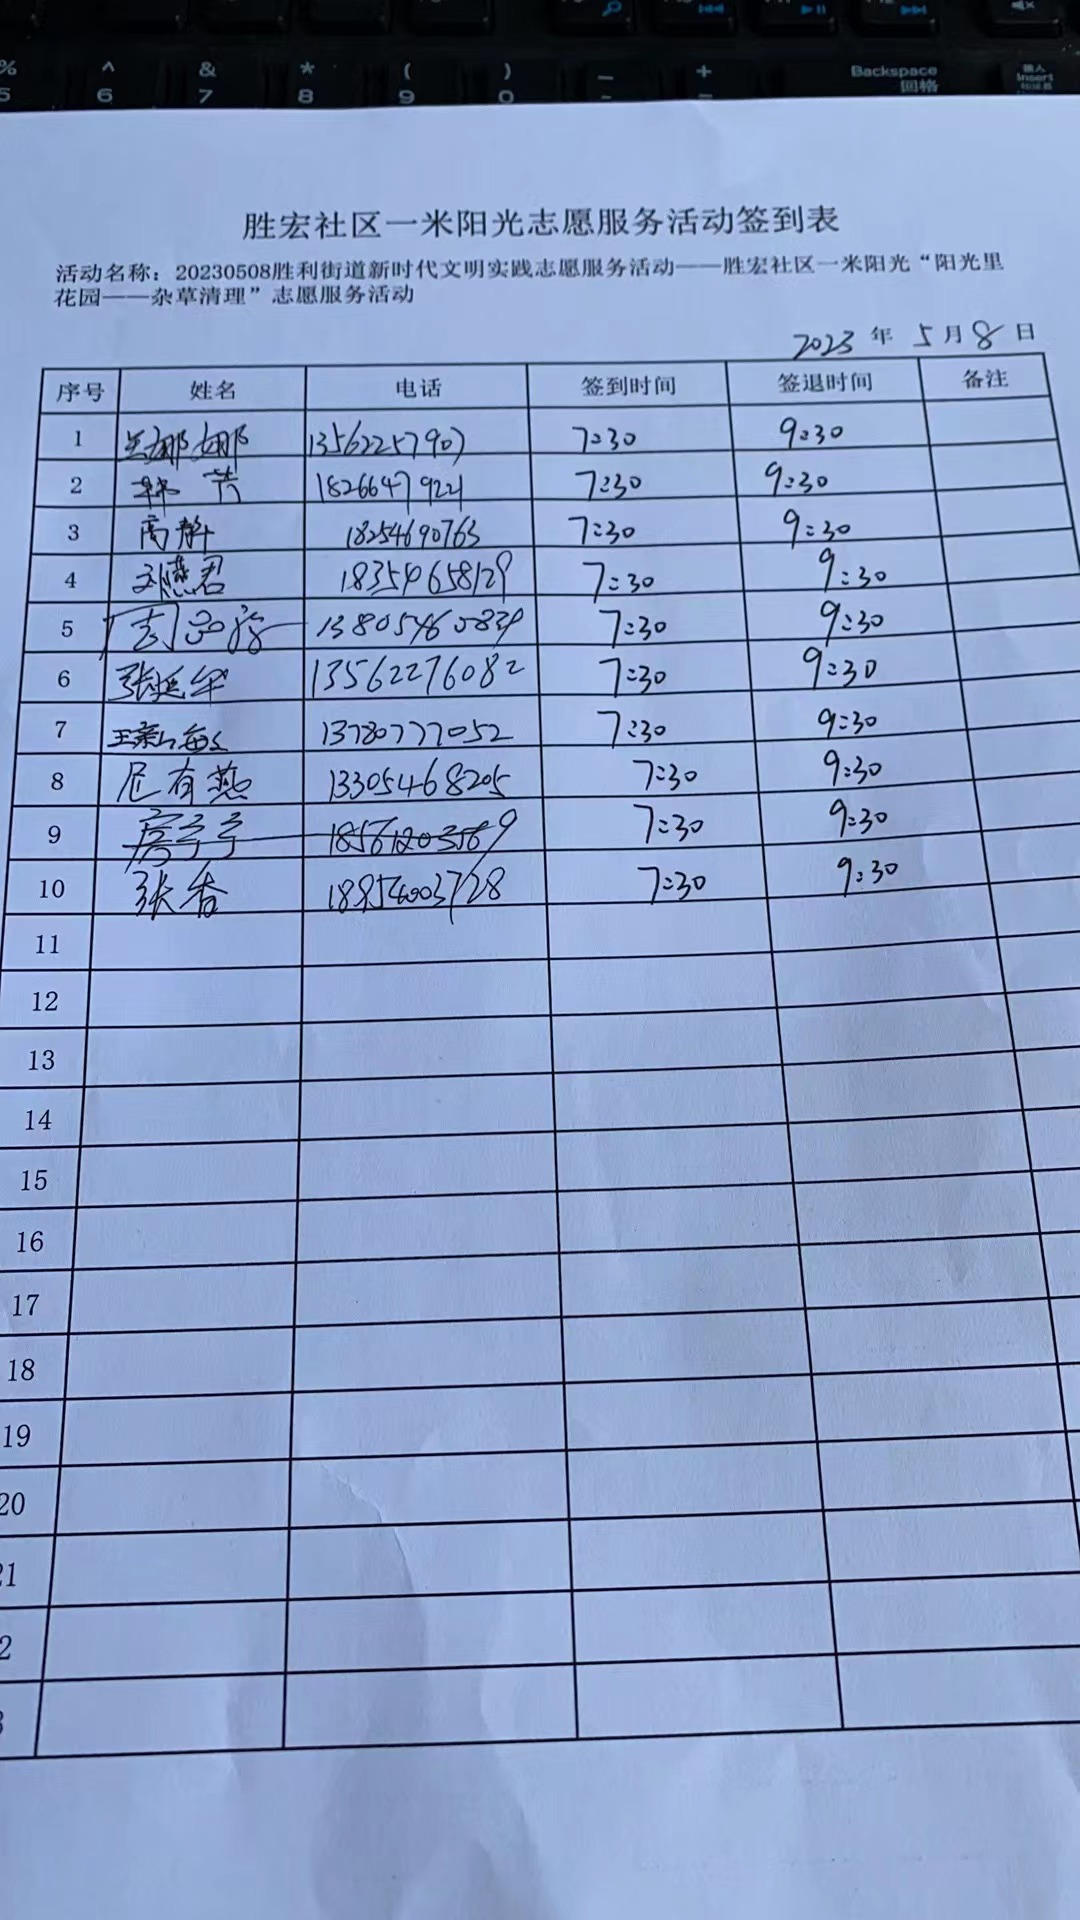 % ^ & * ( ) — +
5 6 7 8 9 0 - =
Backspace 回格
输入 Insert
胜宏社区一米阳光志愿服务活动签到表
活动名称：20230508胜利街道新时代文明实践志愿服务活动——胜宏社区一米阳光“阳光里
花园——杂草清理”志愿服务活动
2023 年 5 月 8 日
序号 姓名 电话 签到时间 签退时间 备注
1 娜娜 13562257907 7:30 9:30
2 韩芳 18266479221 7:30 9:30
3 高静 18254690763 7:30 9:30
4 刘燕君 18354658129 7:30 9:30
5 13805460839 7:30 9:30
6 张延华 13562276082 7:30 9:30
7 王素敏 13780777052 7:30 9:30
8 尼有燕 13305468205 7:30 9:30
9 房亭亭 18561203569 7:30 9:30
10 张香 18954003728 7:30 9:30
11
12
13
14
15
16
17
18
19
20
21
2
3